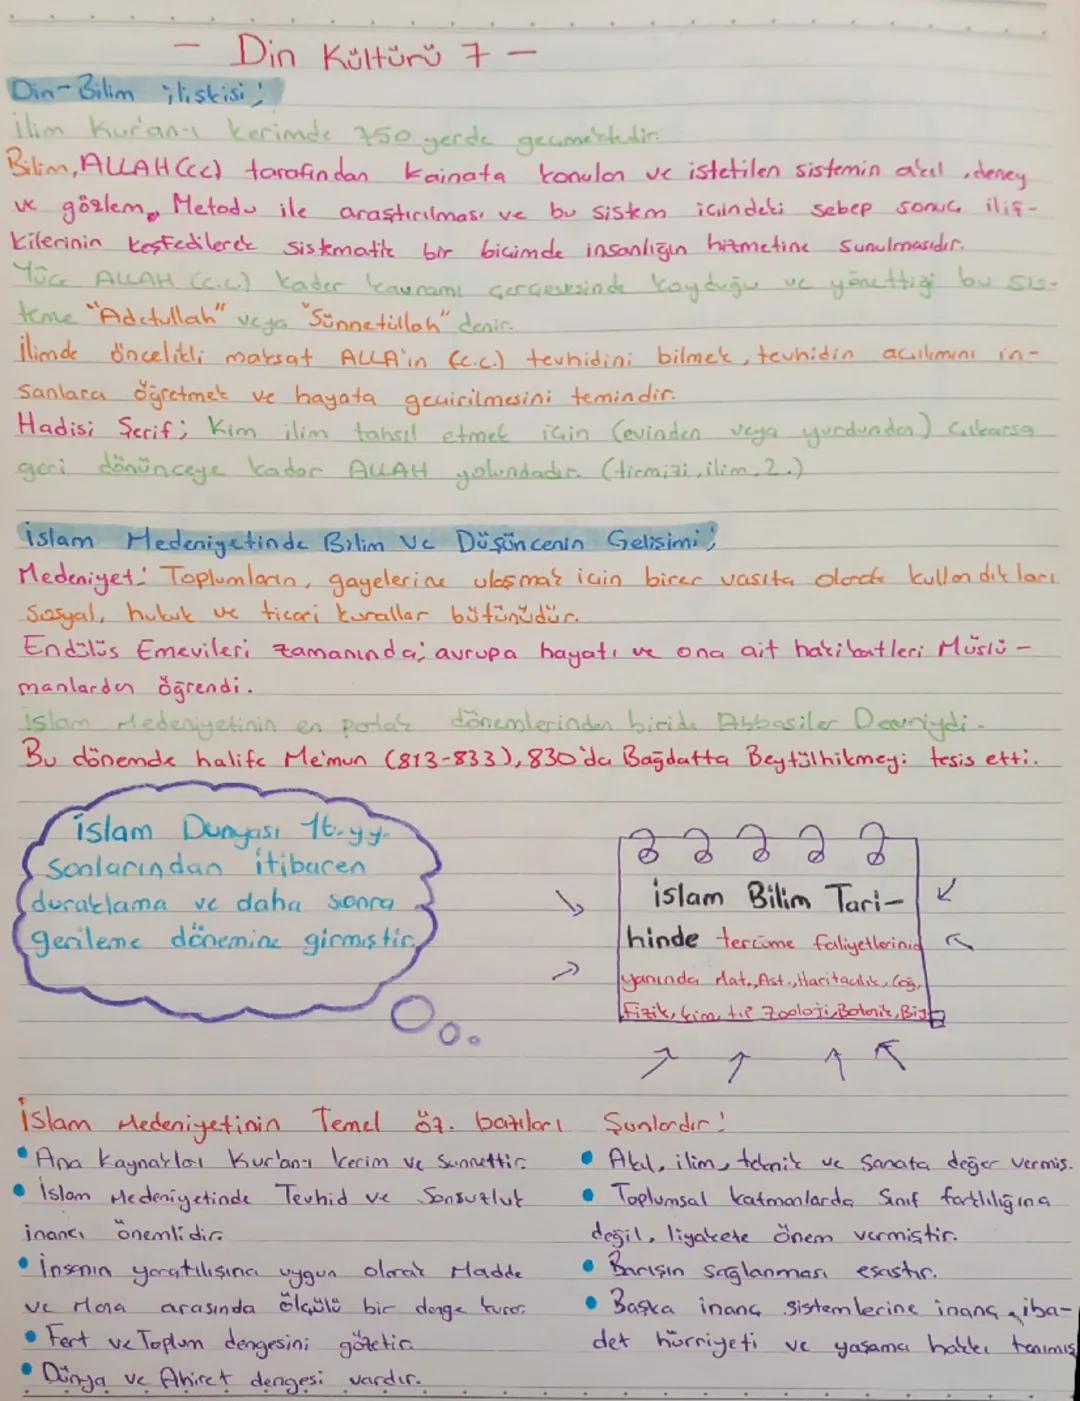 - Din Kültürü 7 -
Din-Bilim ilişkisi;
ilim Kur'an-ı kerimde 750 yerde geçmektedir.
Bilim, ALLAH (cc) tarafından kainata konulan ve istetilen sistemin akıl, deney
ve gözlem, Metodu ile araştırılması ve bu sistem içindeki sebep sonuç iliş-
kilerinin keşfedilerek sistematik bir biçimde insanlığın hizmetine sunulmasıdır.
Yüce ALLAH (c.c.) kader kavramı çerçevesinde koyduğu ve yönettiği bu sis-
teme "Adetullah" veya "Sünnetüllah" denir.
ilimde öncelikli maksat ALLA'ın (c.c.) tevhidini bilmek, tevhidin açılımını in-
sanlara öğretmek ve hayata geçirilmesini temindir.
Hadisi Şerif; Kim ilim tahsil etmek için (evinden veya yurdundan) çıkarsa
geri dönünceye kadar ALLAH yolundadır. (tirmizi, ilim, 2.)
islam Medeniyetinde Bilim ve Düşüncenin Gelişimi;
Medeniyet: Toplumların, gayelerine ulaşmak için birer vasıta olarak kullandıkları
sosyal, hukuk ve ticari kurallar bütünüdür.
Endülüs Emevileri zamanında; avrupa hayatı ve ona ait hakikatleri Müslü-
manlardan öğrendi.
islam Medeniyetinin en parlak dönemlerinden biride Abbasiler Devriydi.
Bu dönemde halife Me'mun (813-833), 830'da Bağdatta Beytülhikmeyi tesis etti.
islam Dünyası 16.yy.
Sonlarından itibaren
duraklama ve daha sonra
gerileme dönemine girmiştir.
islam Bilim Tari-
hinde tercüme faliyetlerinin
yanında Mat., Ast., Haritacılık, Coğ.,
Fizik, kim, tıp Zooloji, Botanik, Biy
islam Medeniyetinin Temel öz. bazıları Şunlardır:
• Ana kaynakları Kur'an-ı kerim ve Sünnettir.
• islam Medeniyetinde Tevhid ve Sonsuzluk
inancı önemlidir.
• insanın yaratılışına uygun olarak Madde
ve Mana arasında ölçülü bir denge kurar.
• Fert ve Toplum dengesini gözetir.
• Dünya ve Ahiret dengesi vardır.
• Akıl, ilim, teknik ve Sanata değer vermiş.
• Toplumsal katmanlarda Sınıf farklılığına
değil, liyakete önem vermiştir.
• Barışın sağlanması esastır.
• Başka inanç sistemlerine inanç, iba-
det hürriyeti ve yaşama hakkı tanımış